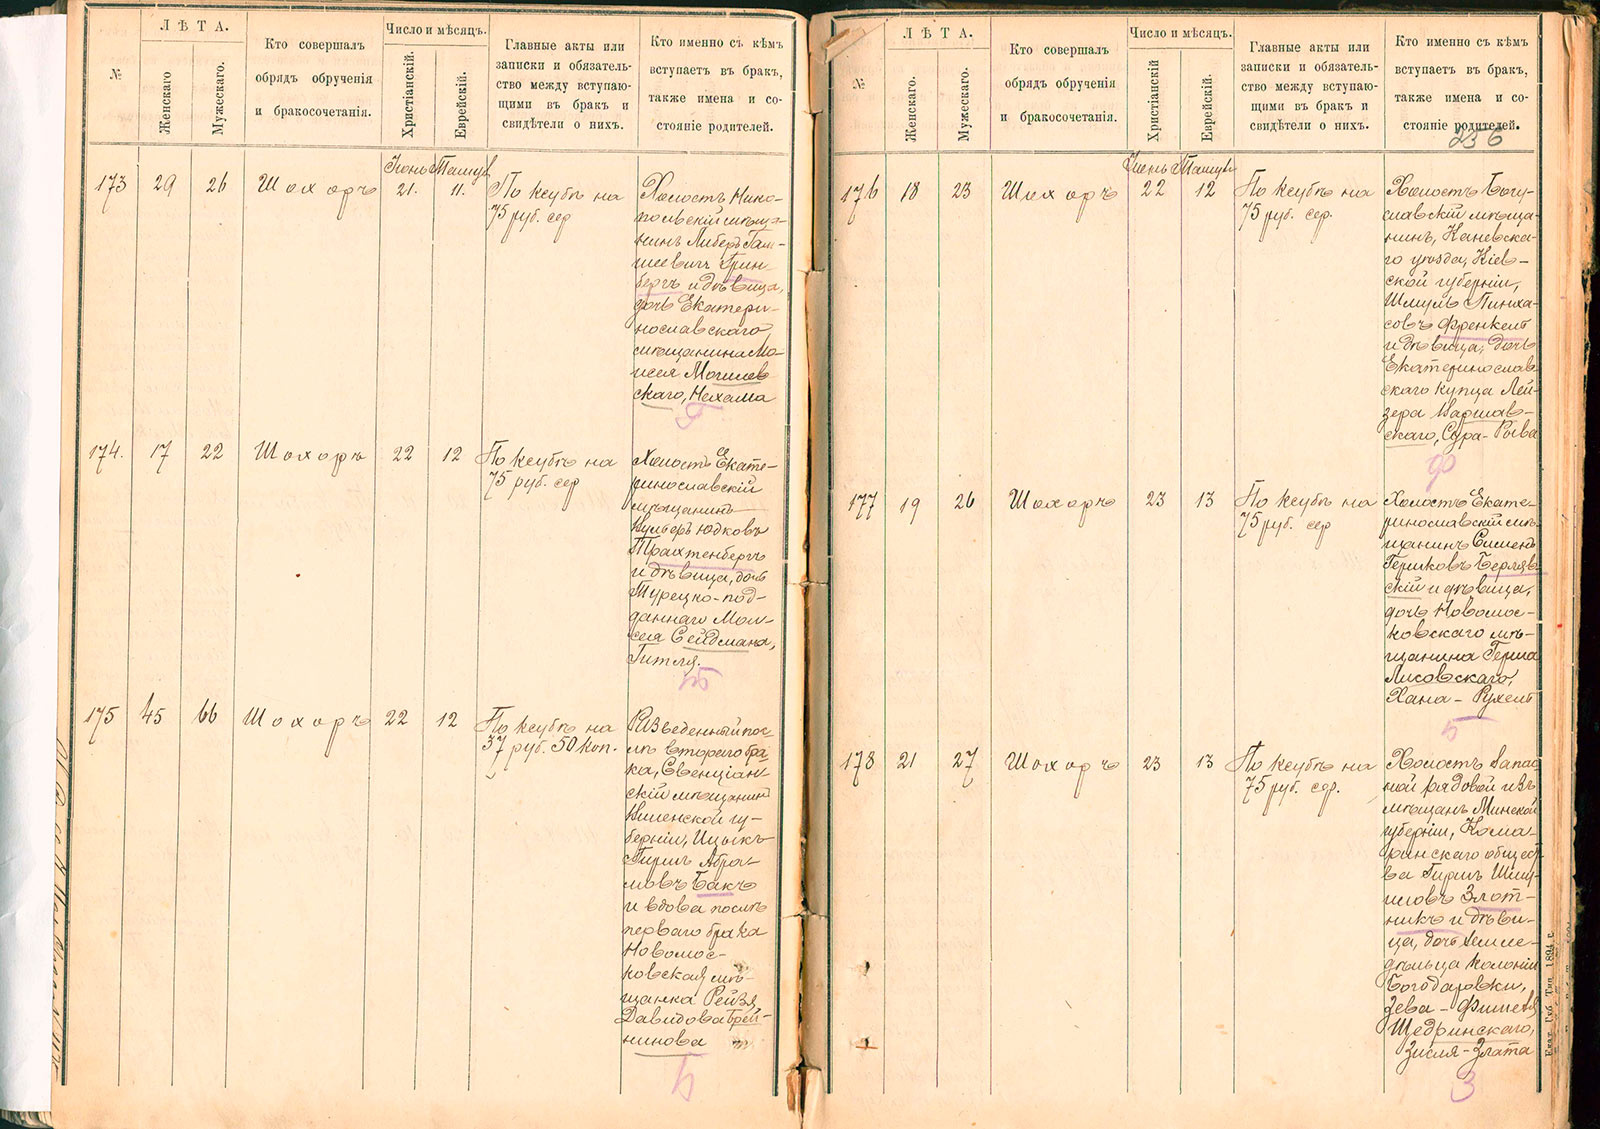 №
ЛѢТА.
Женскаго
Мужескаго.
Кто совершалъ
обрядъ обрученія
и бракосочетанія.
Число и мѣсяцъ.
Христіанскій.
Еврейскій.
Главные акты или
записки и обязатель-
ство между вступаю-
щими въ бракъ и
свидѣтели о нихъ.
Кто именно съ кѣмъ
вступаетъ въ бракъ,
также имена и со-
стояніе родителей.
173
29
26
Шохоръ
Іюнь
21.
Тамуз
11.
По ксубѣ на
75 руб. сер
Холостъ Нико-
польскій мѣща-
нинъ Либеръ
Грин-
бергъ и дѣвица,
дочь Екатери-
нославскаго
мѣщанина Мо-
исея Могилев
скаго, Нехама
Г
174.
17
22
Шохоръ
22
12
По ксубѣ на
75 руб. сер
Холостъ Екате-
ринославскій
мѣщанинъ
Вульфъ Юдковъ
Трахтенбергъ
и дѣвица, дочь
Турецко-под-
даннаго Мои-
сея Сейдмана,
Гитля.
Т
175
45
66
Шохоръ
22
12
По ксубѣ на
37 руб. 50 коп.
Разведенный пос-
лѣ второго бра-
ка, Свенцян
скій мѣщанинъ
Виленской гу-
берніи, Ицыкъ
Гиршъ Абра-
мовъ Бакъ
и вдова послѣ
перваго брака
Новомос-
ковская мѣ-
щанка Рейзя
Давидова Брей-
нинова
Б
№
ЛѢТА.
Женскаго
Мужескаго.
Кто совершалъ
обрядъ обрученія
и бракосочетанія.
Число и мѣсяцъ.
Христіанскій
Еврейскій.
Главные акты или
записки и обязатель-
ство между вступаю-
щими въ бракъ и
свидѣтели о нихъ.
Кто именно съ кѣмъ
вступаетъ въ бракъ,
также имена и со-
стояніе родителей.
256
176
18
23
Шохоръ
Іюнь
22
Тамуз
12
По ксубѣ на
75 руб. сер.
Холостъ Богу-
славскій мѣща-
нинъ, Каневска-
го уѣзда, Кіев-
ской губерніи,
Шмуль Пинха-
совъ Френкель
и дѣвица, дочь
Екатеринослав
скаго купца Лей-
зера Варшав-
скаго, Сура-Рыва
Ф
177
19
26
Шохоръ
23
13
По ксубѣ на
75 руб. сер
Холостъ Екате-
ринославскій мѣ-
щанинъ Симонъ
Гершковъ Берляв
скій и дѣвица,
дочь Новомос-
ковскаго мѣ-
щанина Герша
Лисовскаго,
Хана-Рухель
Б
178
21
27
Шохоръ
23
13
По ксубѣ на
75 руб. сер.
Холостъ Запас
ной рядовой изъ
мѣщанъ Минской
губерніи, Кома-
ринскаго общест
ва Гиршъ Шму-
иловъ Злот-
никъ и дѣви-
ца, дочь земле-
дѣльца колоніи
Богодаровки,
Зева-Фишеля
Щедринскаго,
Зисля-Злата
З
Екат. Губ. Тип. 1894 г.